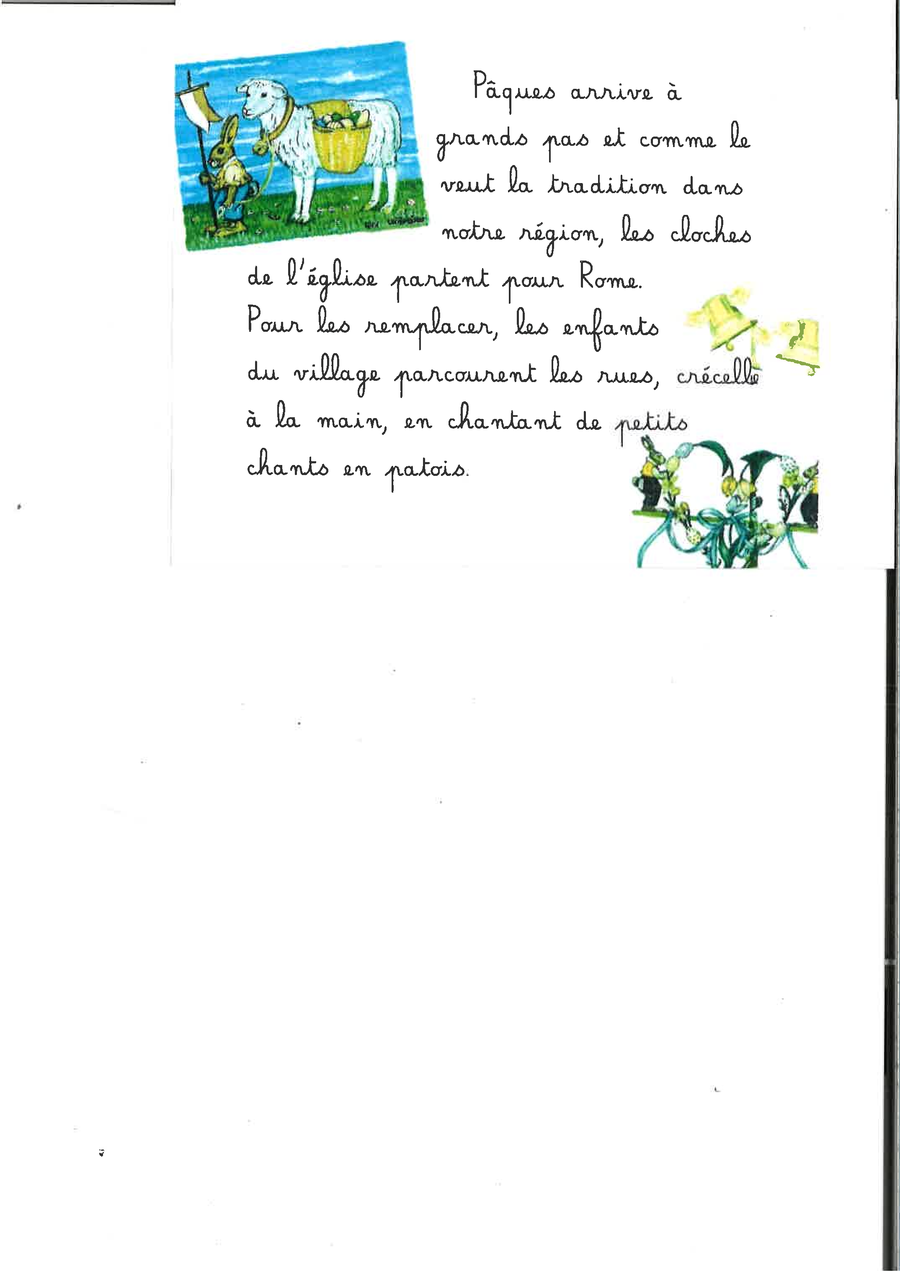 Pâques arrive à
grands pas et comme le
veut la tradition dans
notre région, les cloches
de l'église partent pour Rome.
Pour les remplacer, les enfants
du village parcourent les rues, crécelle
à la main, en chantant de petits
chants en patois.